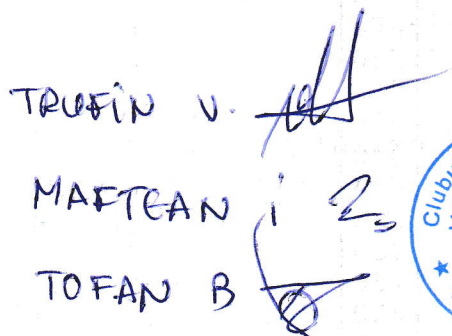 TRUFIN V.
MAFTEAN i
TOFAN B
Clubu